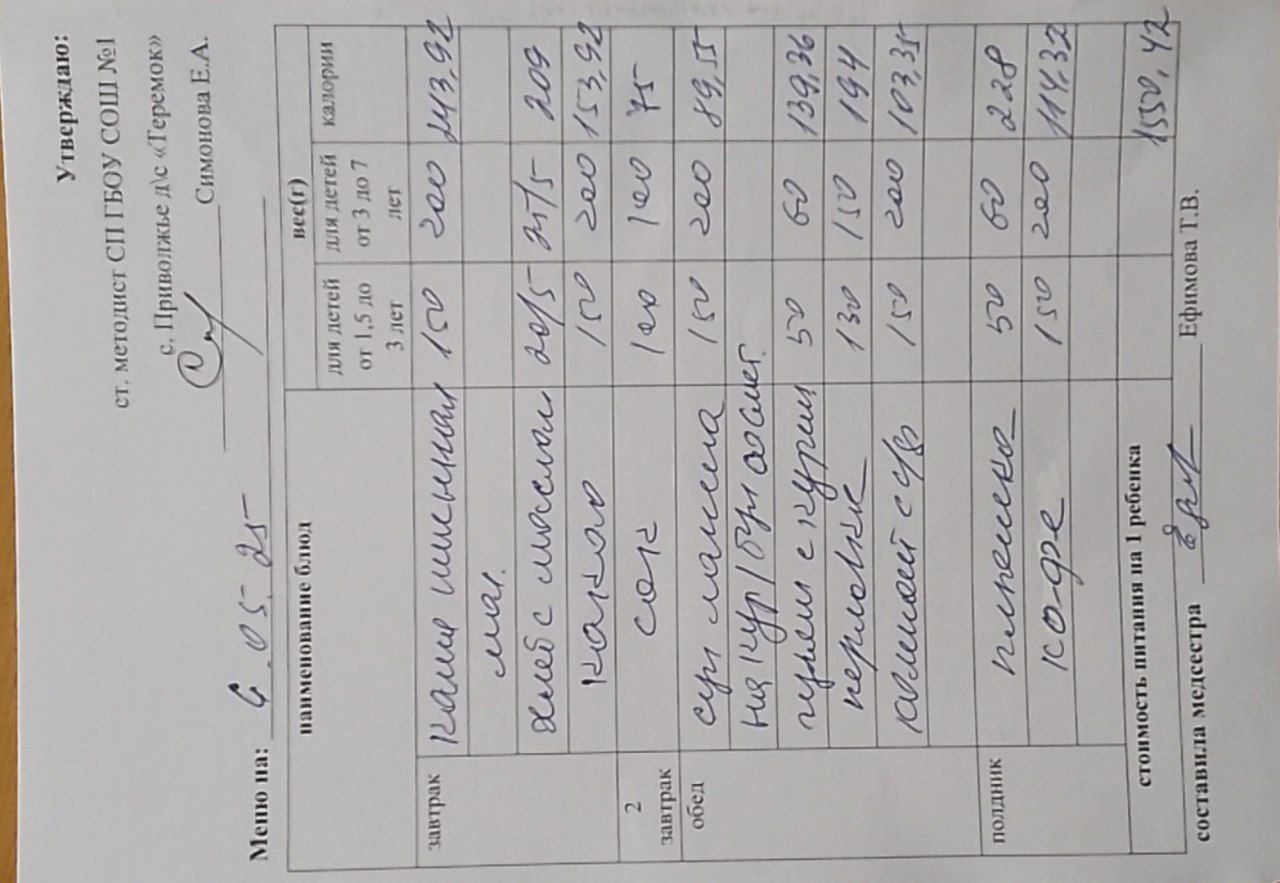 Утверждаю:
ст. методист СП ГБОУ СОШ №1
с. Приволжье д\с «Теремок»
Симонова Е.А.
Меню на: 6.05.25
наименование блюд вес(г) калории
для детей от 1,5 до 3 лет для детей от 3 до 7 лет
завтрак каша пшенная 150 200 243,92
мол.
хлеб с маслом 20/5 25/5 209
какао 150 200 153,92
2 завтрак сок 100 100 75
обед суп лапша 150 200 89,55
на кур/бул
гуляш с куриц 50 60 139,36
перловка 130 150 194
компот с с/ф 150 200 103,35
полдник плюшка 50 60 228
ко-фе 150 200 114,32
стоимость питания на 1 ребенка 1550,42
составила медсестра Ефимова Т.В.